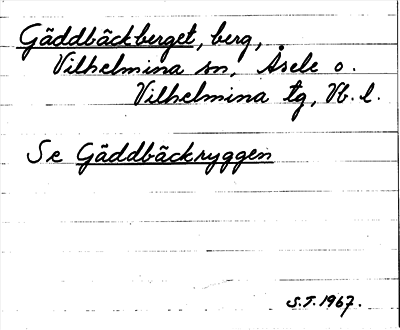 Gäddbäckberget, berg,
Vilhelmina sn, Åsele o.
Vilhelmina tg, Vb. l.
Se Gäddbäckryggen
S.T. 1967.